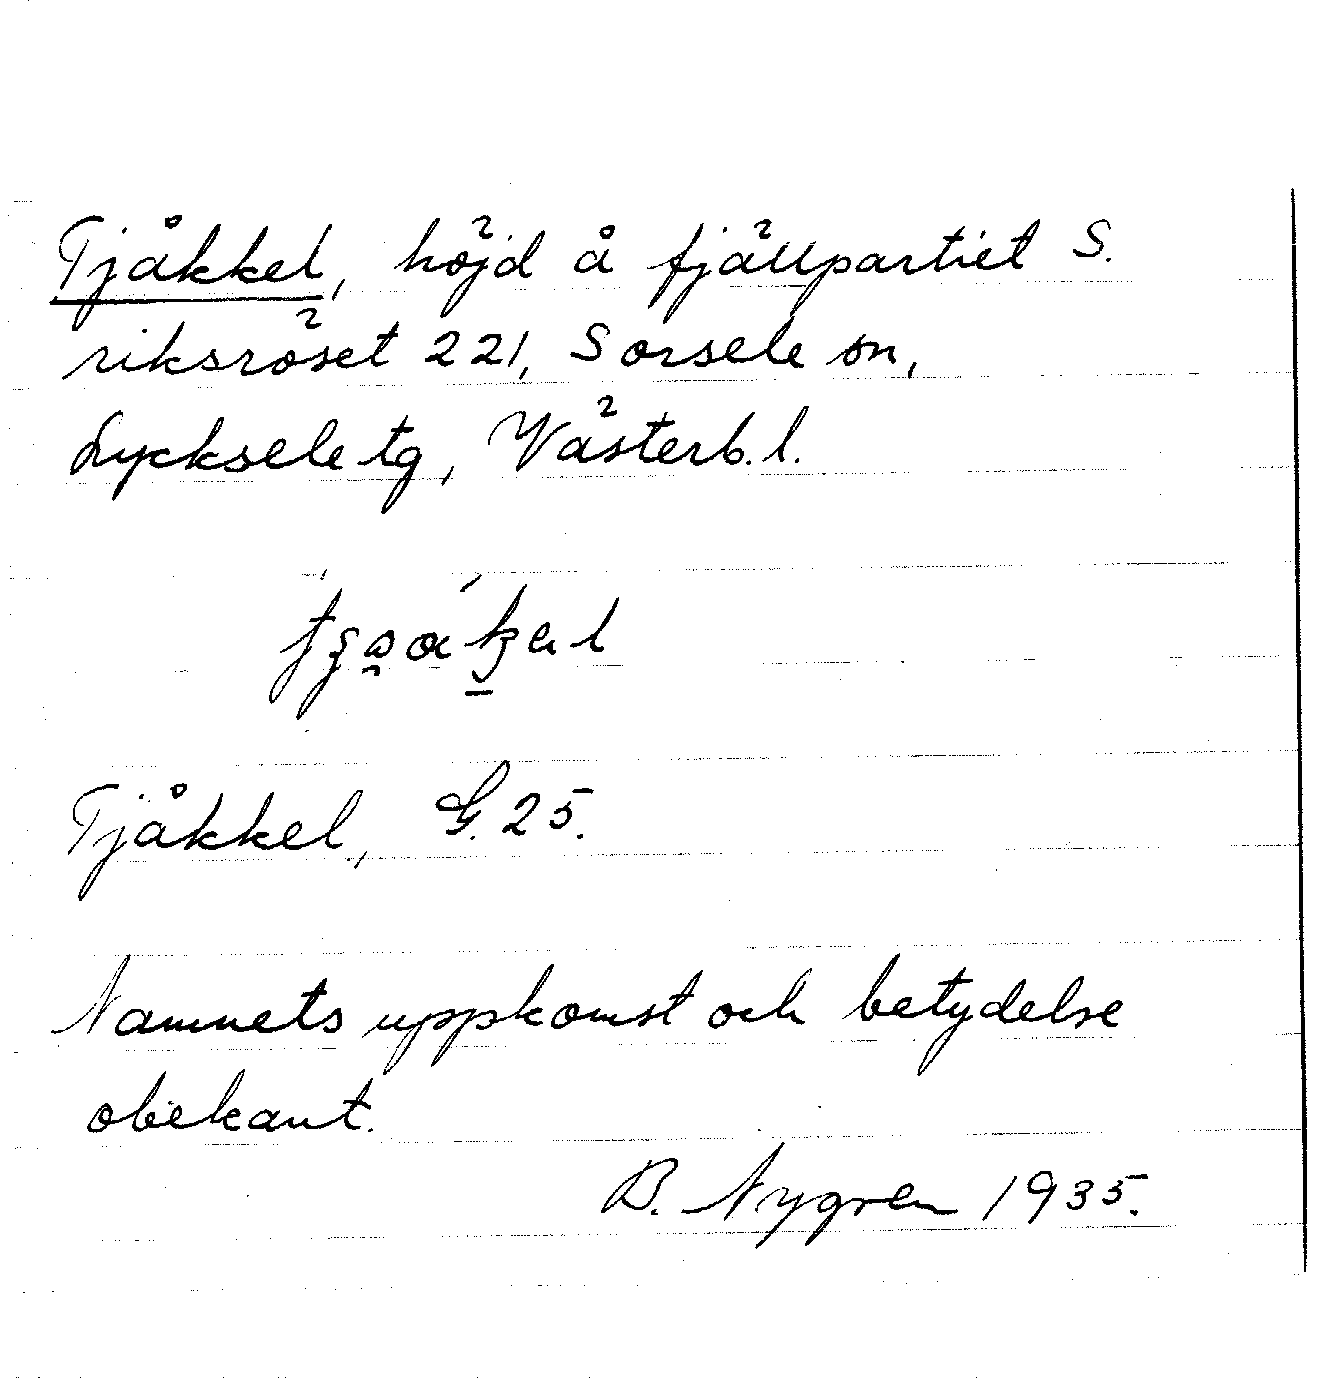 Tjåkkel, höjd å fjällpartiet S.
riksröset 221, Sorsele sn,
Lycksele tg, Västerb. l.
Tjåkkel, G. 25.
Namnets uppkomst och betydelse
obekant.
B. Nygren 1935.